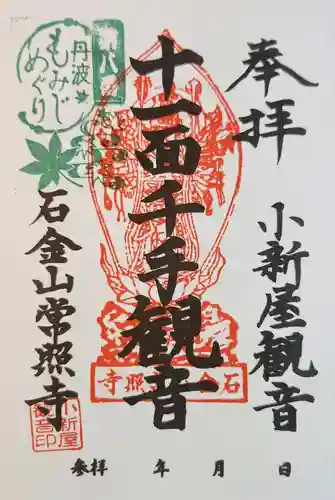 奉拝
小新屋観音
十一面千手観音
石金山常照寺
丹波
もみじ
めぐり
小新屋
観音印
参拝 年 月 日